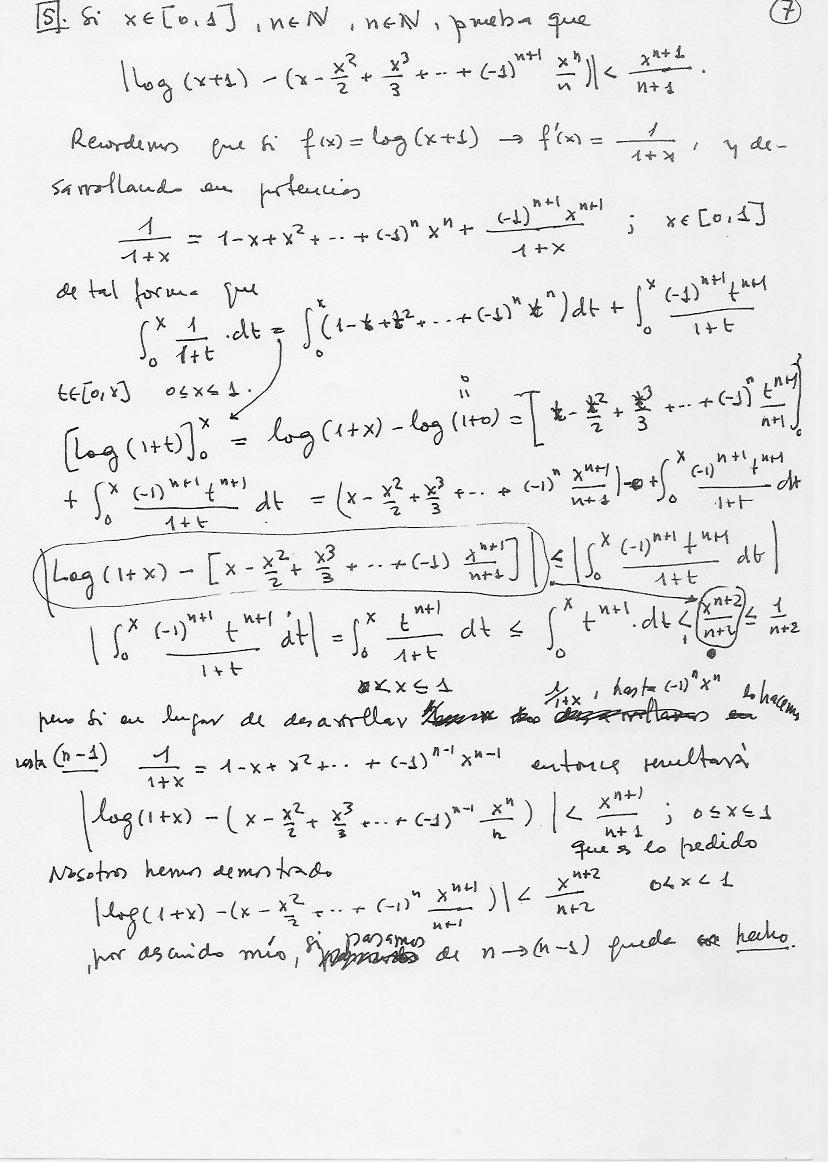 ⑦
[5]. Si x∈[0,1], n∈ℕ, n∈ℕ, prueba que
|log(x+1) - (x - x²/2 + x³/3 + ... + (-1)ⁿ⁺¹ xⁿ/n)| < xⁿ⁺¹/(n+1).
Recordemos que si f(x) = log(x+1) → f'(x) = 1/(1+x), y de-
sarrollando en potencias
1/(1+x) = 1-x+x²+ ... +(-1)ⁿ xⁿ + (-1)ⁿ⁺¹xⁿ⁺¹/(1+x) ; x∈[0,1]
de tal forma que
∫₀ˣ 1/(1+t) · dt = ∫₀ˣ (1-t+t²+ ... +(-1)ⁿ tⁿ)dt + ∫₀ˣ (-1)ⁿ⁺¹tⁿ⁺¹/(1+t)
t∈[0,x] 0≤x≤1.
[Log(1+t)]₀ˣ = log(1+x) - log(1+0) = [t - t²/2 + t³/3 + ... +(-1)ⁿ tⁿ⁺¹/(n+1)]₀
0
=
+ ∫₀ˣ (-1)ⁿ⁺¹tⁿ⁺¹/(1+t) dt = (x - x²/2 + x³/3 + ... + (-1)ⁿ xⁿ⁺¹/(n+1)) - 0 + ∫₀ˣ (-1)ⁿ⁺¹tⁿ⁺¹/(1+t) dt
|Log(1+x) - [x - x²/2 + x³/3 + ... +(-1) xⁿ⁺¹/(n+1)]| ≤ |∫₀ˣ (-1)ⁿ⁺¹tⁿ⁺¹/(1+t) dt|
|∫₀ˣ (-1)ⁿ⁺¹ tⁿ⁺¹/(1+t) dt| = ∫₀ˣ tⁿ⁺¹/(1+t) dt ≤ ∫₀ˣ tⁿ⁺¹ · dt ≤ xⁿ⁺²/(n+2) ≤ 1/(n+2)
0<x≤1
pero si en lugar de desarrollar 1/(1+x), hasta (-1)ⁿxⁿ lo hacemos
hasta (n-1) 1/(1+x) = 1-x+x²+ ... + (-1)ⁿ⁻¹xⁿ⁻¹ entonces resultará
|log(1+x) - (x - x²/2 + x³/3 + ... + (-1)ⁿ⁻¹ xⁿ/n)| < xⁿ⁺¹/(n+1) ; 0≤x≤1
que es lo pedido
Nosotros hemos demostrado
|log(1+x) - (x - x²/2 + ... + (-1)ⁿ xⁿ⁺¹/(n+1))| < xⁿ⁺²/(n+2) 0<x<1
, por descuido mío, si pasamos de n→(n-1) queda hecho.